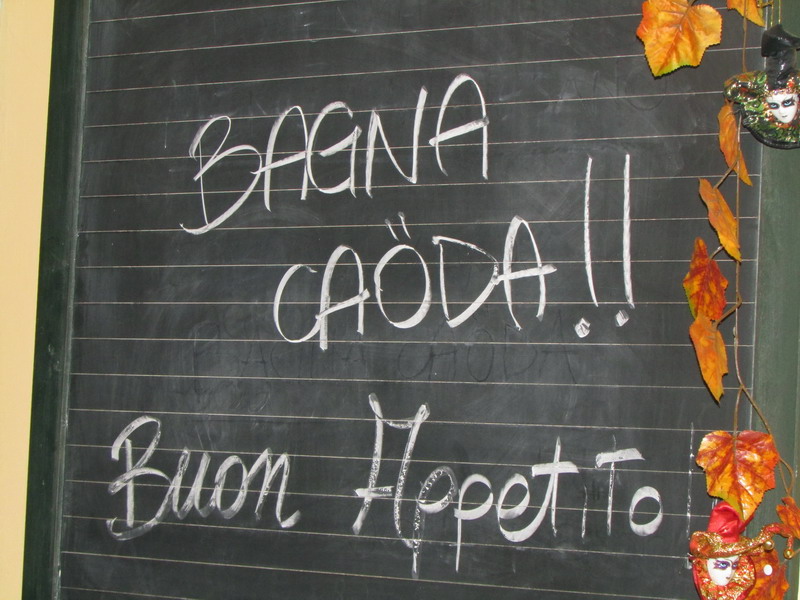 BAGNA
CAÖDA!!
Buon Appetito